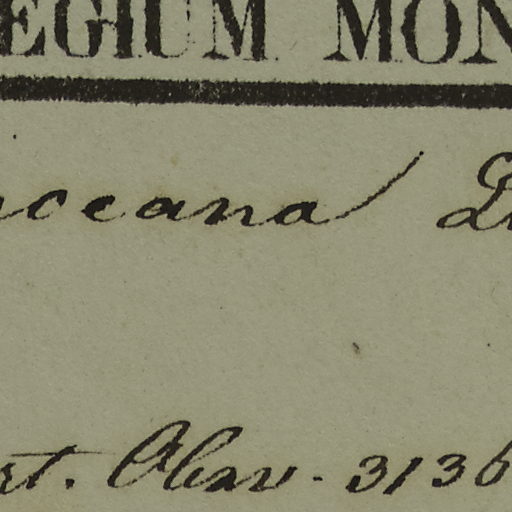 EGIUM MON
ceana
rt. Obsv. 3136